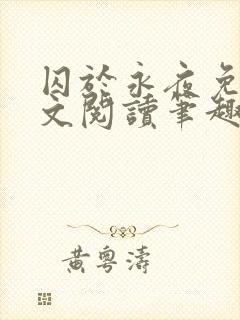 囚於永夜免
文閱讀筆趣
黃粵濤